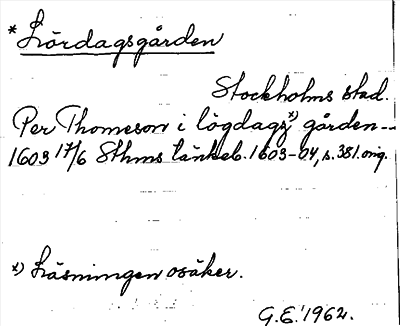 * Lördagsgården
Stockholms stad.
Per Thomeson i lögdagz *) gården --
1603 17/6 Sthms tänkeb. 1603-04, s. 381. orig.
*) Läsningen osäker.
G.E. 1962.